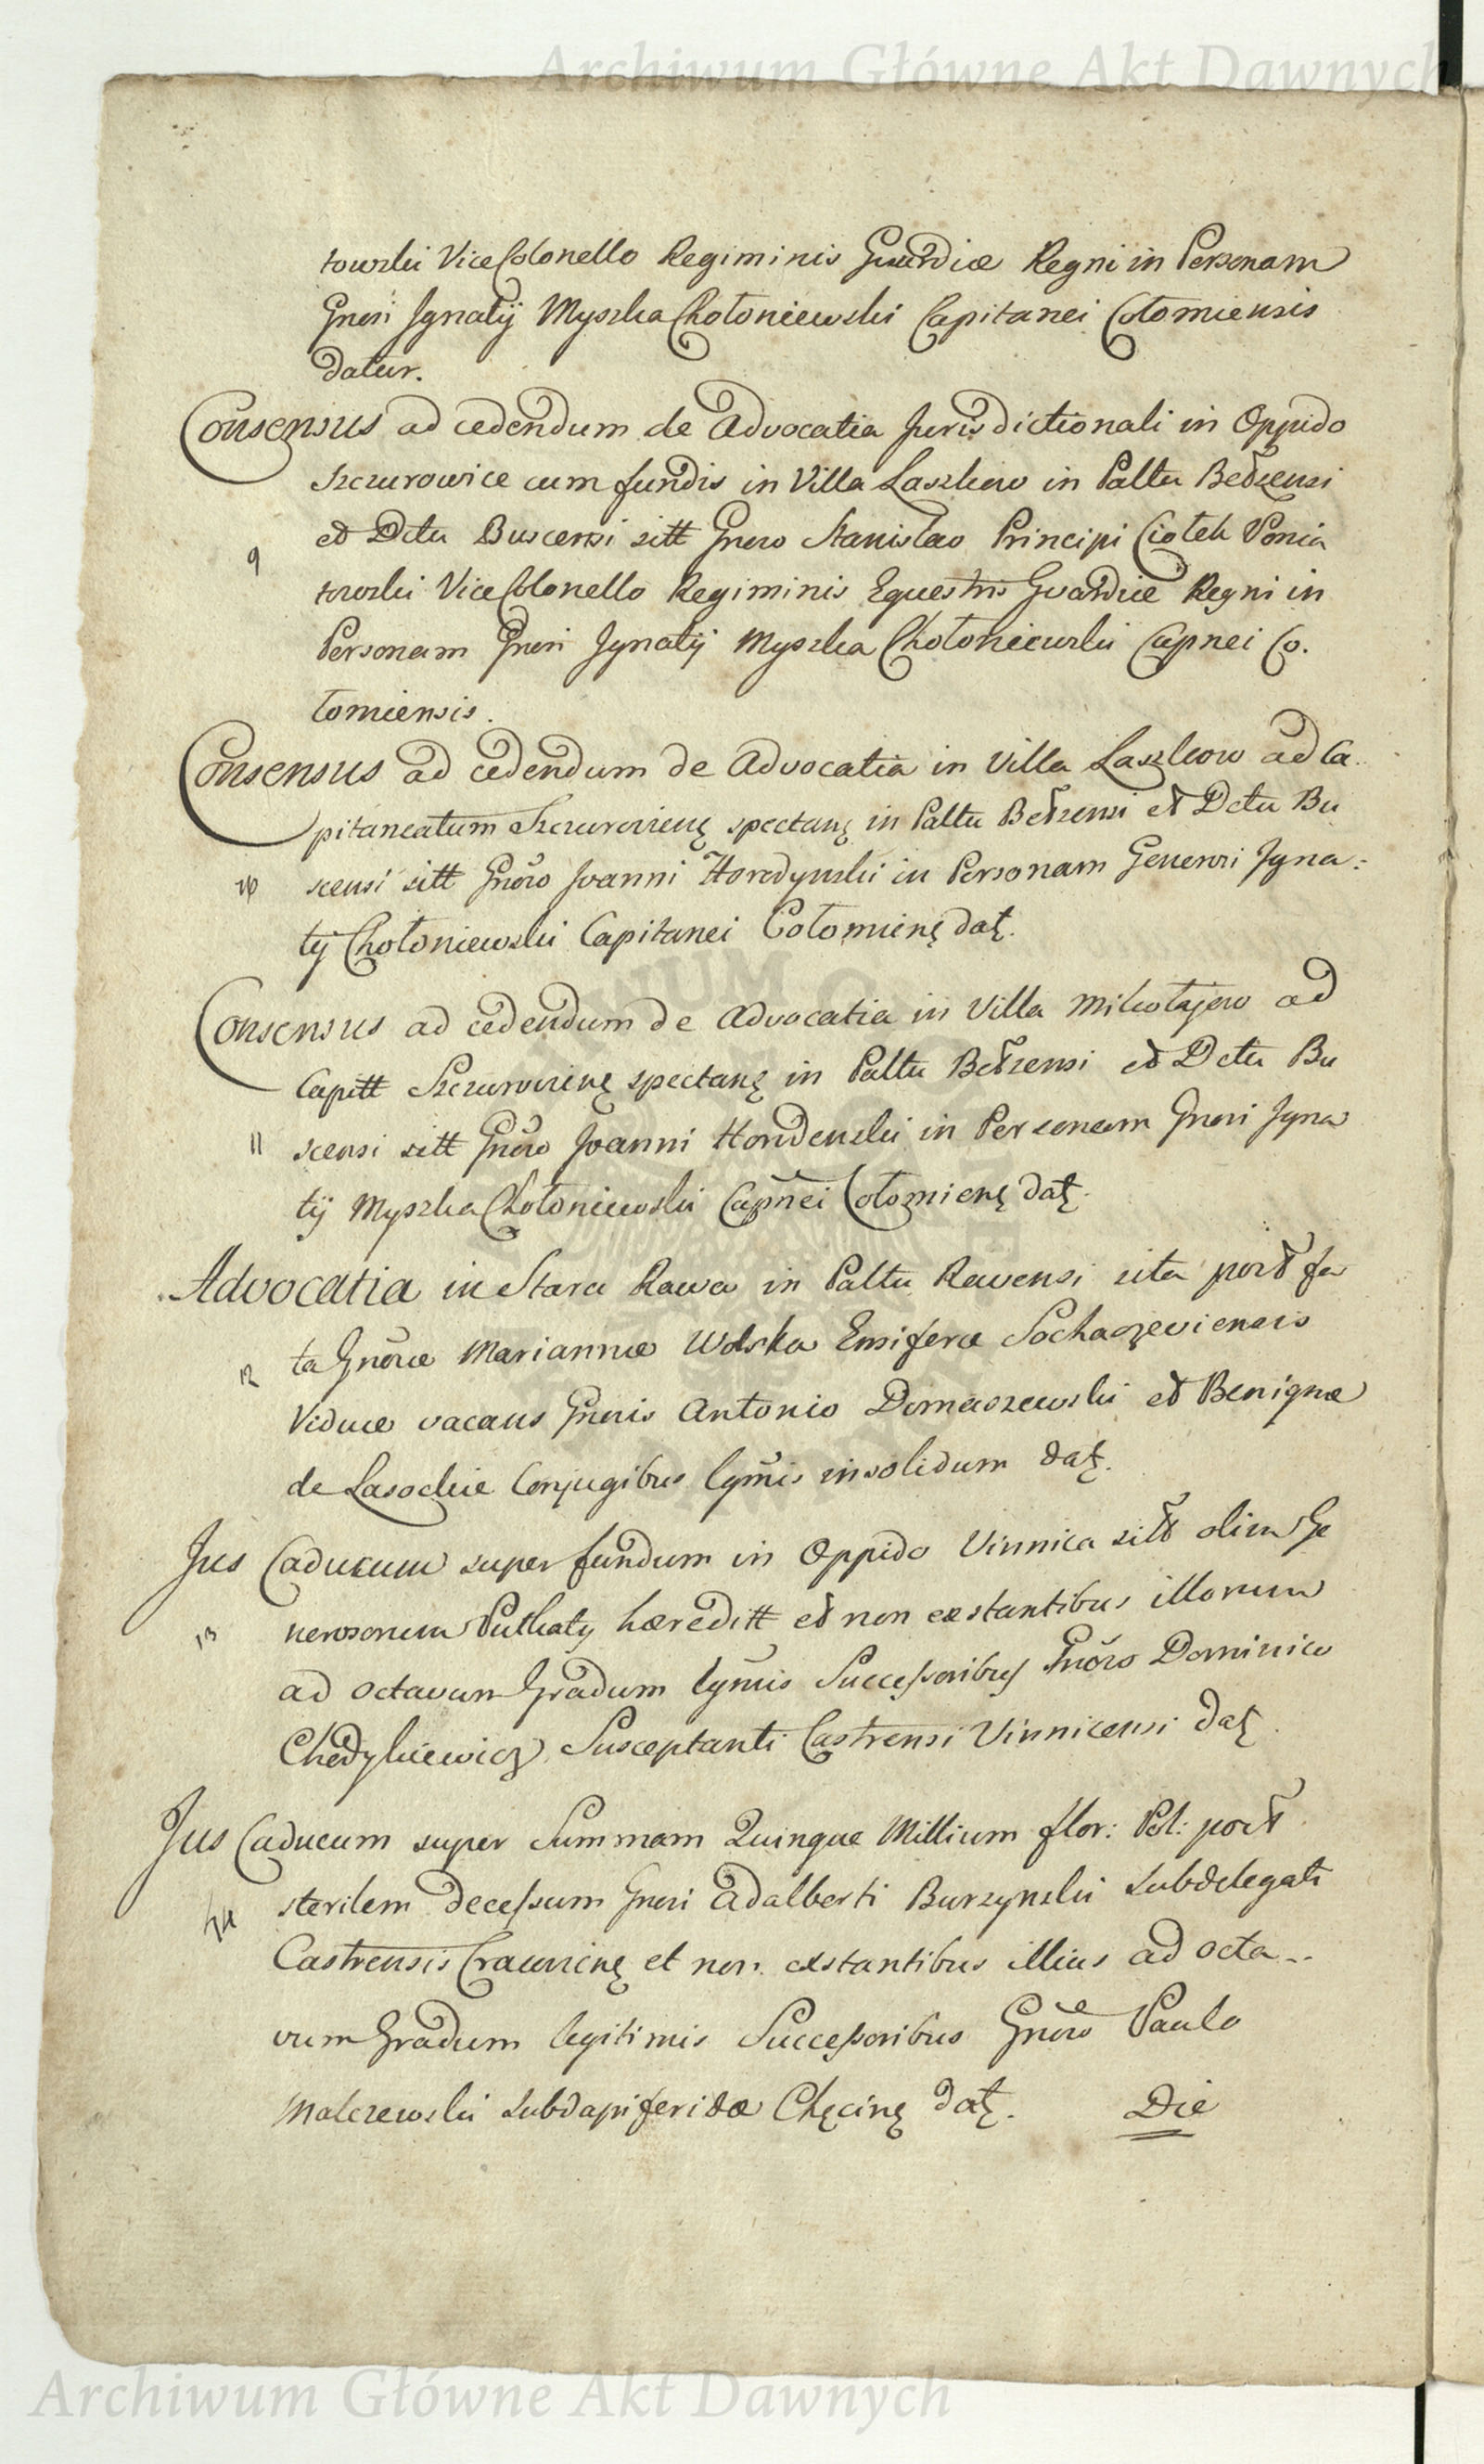 Archiwum Główne Akt Dawnych
towski ViceColonello Regiminis Guardiæ Regni in Personam
Gnesi Ignatij Myszka Chołoniewski Capitanei Cołomiensis
datur.
Consensus ad cedendum de Advocatia Jurisdictionali in Oppido
Szczurowice cum fundis in Villa Laszkow in Palttu Bełzensi
9 et Dctu Buscensi sitt Gnero Stanislao Principi Ciołek Ponia
towski ViceColonello Regiminis Equestris Guardiæ Regni in
Personam Gneri Ignatij Myszka Chołoniewski Capnei Co.
łomiensis.
Consensus ad cedendum de Advocatia in Villa Laszkow ad Ca
pitaneatum Szczurovicenę spectanę in Palttu Bełzensi et Dctu Bu
10 scensi sitt Gnero Joanni Horodynski in Personam Generosi Igna:
tij Chołoniewski Capitanei Cołomienę datę.
Consensus ad cedendum de Advocatia in Villa Mikołajow ad
Capitt Szczurovicenę spectanę in Palttu Bełzensi et Dctu Bu
11 scensi sitt Gnero Joanni Hordenski in Personam Gneri Igna
tij Myszka Chołoniewski Capnei Cołomienę datę.
Advocatia in Stara Rawa in Palttu Ravensi sita post fa
12 ta Gneræ Mariannæ Wolska Ensiferæ Sochaczeviensis
Viduæ vacans Gneris Antonio Domaszewski et Benignæ
de Lasockie Conjugibus lgmis insolidum datę.
Jus Caducum super fundum in Oppido Vinnica sitt olim Ge
13 nerosorum Puthaty hæreditt et non exstantibus illorum
ad octavum Gradum lgmis Successoribus Gnero Dominico
Chedykiewicz Susceptanti Castrensi Vinnicensi datę.
Jus Caducum super Summam Quinque Millium flor: Pol: post
14 sterilem decessum Gneri Adalberti Burzynski Subdelegati
Castrensis Cracovienę et non exstantibus illius ad octa--
vum Gradum legitimis Successoribus Gnero Paulo
Malczewski Subdapiferidæ Chęcinę datę. Die
Archiwum Główne Akt Dawnych